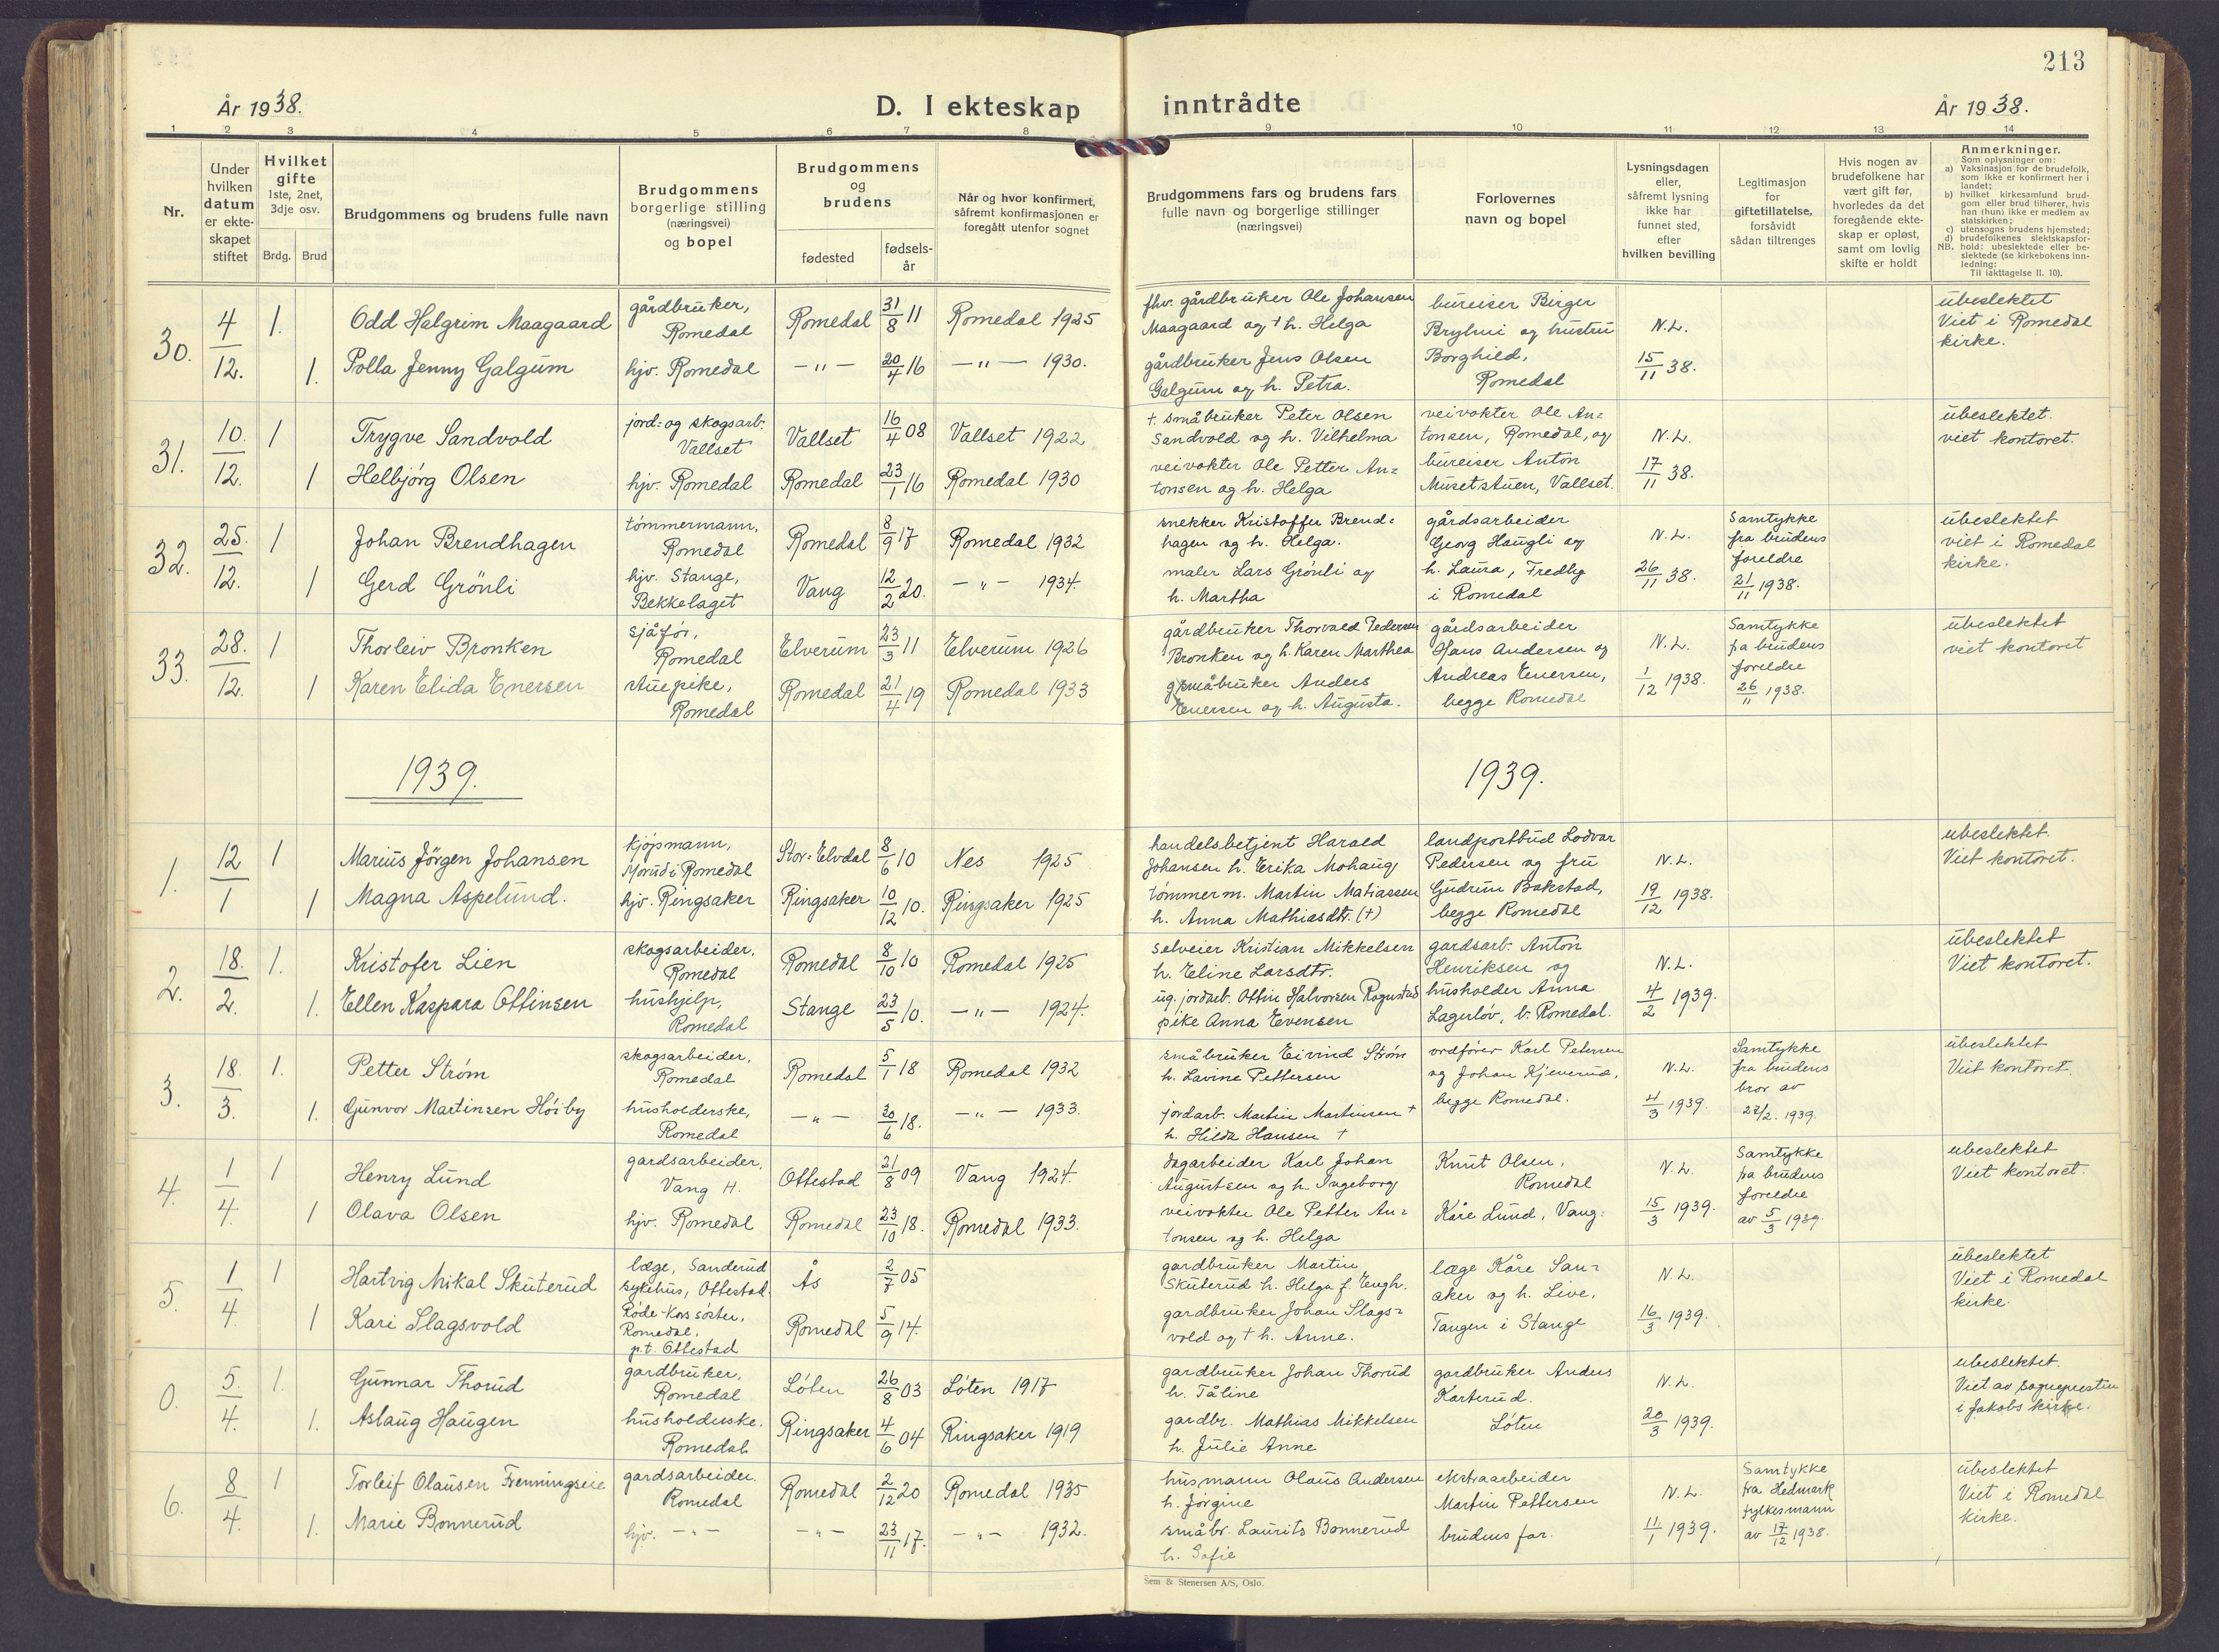 213
År 1938.
D. I ekteskap inntrådte
År 1938.
1 2 3 4 5 6 7 8 9 10 11 12 13 14
Nr.
Under
hvilken
datum
er ekte-
skapet
stiftet
Hvilket
gifte
1ste, 2net,
3dje osv.
Brdg. Brud
Brudgommens og brudens fulle navn
Brudgommens
borgerlige stilling
(næringsvei)
og bopel
Brudgommens
og
brudens
fødested
fødsels-
år
Når og hvor konfirmert,
såfremt konfirmasjonen er
foregått utenfor sognet
Brudgommens fars og brudens fars
fulle navn og borgerlige stillinger
(næringsvei)
Forlovernes
navn og bopel
Lysningsdagen
eller,
såfremt lysning
ikke har
funnet sted,
efter
hvilken bevilling
Legitimasjon
for
giftetillatelse,
forsåvidt
sådan tiltrenges
Hvis nogen av
brudefolkene har
vært gift før,
hvorledes da det
foregående ekte-
skap er opløst,
samt om lovlig
skifte er holdt
Anmerkninger.
Som oplysninger om:
a) Vaksinasjon for de brudefolk,
som ikke er konfirmert her i
landet;
b) hvilket kirkesamfund brud-
gom eller brud tilhører, hvis
han (hun) ikke er medlem av
statskirken;
c) utensogns brudens hjemsted;
d) brudefolkenes slektskapsfor-
NB. hold: ubeslektede eller be-
slektede (se kirkebokens inn-
ledning:
Til iakttagelse II. 10).
30.
4/12.
1.
Odd Halgrim Maagaard
gårdbruker,
Romedal
Romedal
31/8 11
Romedal 1925
fhv. gårdbruker Ole Johansen
Maagaard og † h. Helga
bureiser Birger
Bryhni og hustru
Borghild,
Romedal
N.L.
15/11 38.
ubeslektet
Viet i Romedal
kirke.
1.
Polla Jenny Galgum
hjv. Romedal
—"—
20/4 16
—"— 1930.
gårdbruker Jens Olsen
Galgum og h. Petra.
31.
10./12.
1
Trygve Sandvold
jord- og skogsarb.
Vallset
Vallset
16/4 08
Vallset 1922
† småbruker Peter Olsen
Sandvold og h. Vilhelma
veivokter Ole An=
tonsen, Romedal, og
bureiser Anton
Musetstuen, Vallset.
N.L.
17/11 38.
ubeslektet.
viet kontoret.
1
Helbjörg Olsen
hjv. Romedal
Romedal
23/1 16
Romedal 1930
veivokter Ole Petter An=
tonsen og h. Helga
32.
25./12.
1
Johan Brendhagen
tömmermann,
Romedal
Romedal
8/9 17
Romedal 1932
snekker Kristoffer Brend=
hagen og h. Helga.
gårdsarbeider
Georg Haugli og
h. Laura, Fredly
i Romedal
N.L.
26/11 38.
Samtykke
fra brudens
foreldre
21/11 1938.
ubeslektet
viet i Romedal
kirke.
1
Gerd Grönli
hjv. Stange,
Bekkelaget
Vang
12/2 20.
—"— 1934.
maler Lars Grönli og
h. Martha
33.
28./12.
1
Thorleiv Bronken
sjåför,
Romedal
Elverum
23/3 11
Elverum 1926
gårdbruker Thorvald Pedersen
Bronken og h. Karen Marthea
gårdsarbeider
Hans Andersen og
Andreas Enersen,
begge Romedal
N.L.
1/12 1938.
Samtykke
fra brudens
foreldre
26/11 1938.
ubeslektet
viet kontoret
1
Karen Elida Enersen
stuepike,
Romedal
Romedal
21/4 19
Romedal 1933
småbruker Anders
Enersen og h. Augusta.
1939.
1939.
1.
12/1
1
Marius Jörgen Johansen
kjöpmann,
Romedal
Stor-Elvdal
8/6 10
Nes 1925
handelsbetjent Harald
Johansen h. Erika Mohaug
landpostbud Lodvar
Pedersen og fru
Gudrun Bakstad,
begge Romedal
N.L.
19/12 1938.
ubeslektet.
Viet kontoret.
1
Magna Aspelund.
hjv. Ringsaker
Ringsaker
10/12 10.
Ringsaker 1925
tömmerm. Martin Matiassen
h. Anna Mathiasdtr. (†)
2.
18./2.
1.
Kristofer Lien
skogsarbeider,
Romedal
Romedal
8/10 10
Romedal 1925
selveier Kristian Mikkelsen
h. Eline Larsdtr.
gardsarb. Anton
Henriksen og
husholder Anna
Lagerlöv, b. Romedal.
N.L.
4/2 1939.
ubeslektet
Viet kontoret.
1.
Ellen Kaspara Ottinsen
hushjelp,
Romedal
Stange
23/5 10.
—"— 1924.
ug. jordarb. Ottin Halvorsen Rognstad
pike Anna Evensen
3.
18./3.
1.
Petter Ström
skogsarbeider,
Romedal
Romedal
5/1 18
Romedal 1932
småbruker Eivind Ström
h. Lavine Pettersen
ordförer Karl Petersen
og Johan Kjeverud,
begge Romedal.
N.L.
4/3 1939.
Samtykke
fra brudens
bror av
28/2. 1939.
ubeslektet
Viet kontoret.
1.
Gunvor Martinsen Höiby
husholderske,
Romedal
—"—
30/6 18.
—"— 1933.
jordarb. Martin Martinsen †
h. Hilda Hansen †
4.
1/4.
1
Henry Lund
gardsarbeider,
Vang H.
Ottestad
21/8 09
Vang 1924.
dagarbeider Karl Johan
Augustsen og h. Ingeborg
Knut Olsen,
Romedal
Kåre Lund, Vang.
N.L.
15/3 1939.
Samtykke
fra brudens
foreldre
av 5/3 1939.
ubeslektet
Viet kontoret.
1
Olava Olsen
hjv. Romedal
Romedal
23/10 18.
Romedal 1933.
veivokter Ole Petter An=
tonsen og h. Helga
5.
1/4.
1
Hartvig Mikal Skuterud
læge, Sanderud
sykehus, Ottestad.
Ås
2/7 05
gardbruker Martin
Skuterud h. Helga f. Engh.
læge Kåre San=
aker og h. Live,
Tangen i Stange
N.L.
16/3 1939.
ubeslektet
Viet i Romedal
kirke.
1
Kari Slagsvold
Röde-Kors söster,
Romedal,
p.t. Ottestad
Romedal
5/9 14.
gardbruker Johan Slags=
vold og † h. Anne.
0.
5./4.
1.
Gunnar Thorud
gardbruker,
Romedal
Löten
26/8 03
Löten 1917
gardbruker Johan Thorud
h. Tåline
gardbruker Anders
Karterud.
Löten
N.L.
20/3 1939.
ubeslektet.
Viet av sognepresten
i Jakobs kirke.
1.
Aslaug Haugen
husholderske.
Romedal
Ringsaker
4/6 04
Ringsaker 1919
gardbr. Mathias Mikkelsen
h. Julie Anne
6.
8/4.
1
Torleif Olausen Frenningseie
gardsarbeider.
Romedal
Romedal
2/12 20
Romedal 1935
husmann Olaus Andersen
h. Jörgine
ekstraarbeider
Martin Pettersen
brudens far.
N.L.
11/1 1939.
Samtykke
fra Hedmark
fylkesmann
av 17/12 1938.
ubeslektet
Viet i Romedal
kirke.
1.
Marie Bonnerud
hjv. —"—
—"—
23/11 17.
—"— 1932.
småbr. Laurits Bonnerud
h. Sofie
Sem & Stenersen A/S, Oslo.